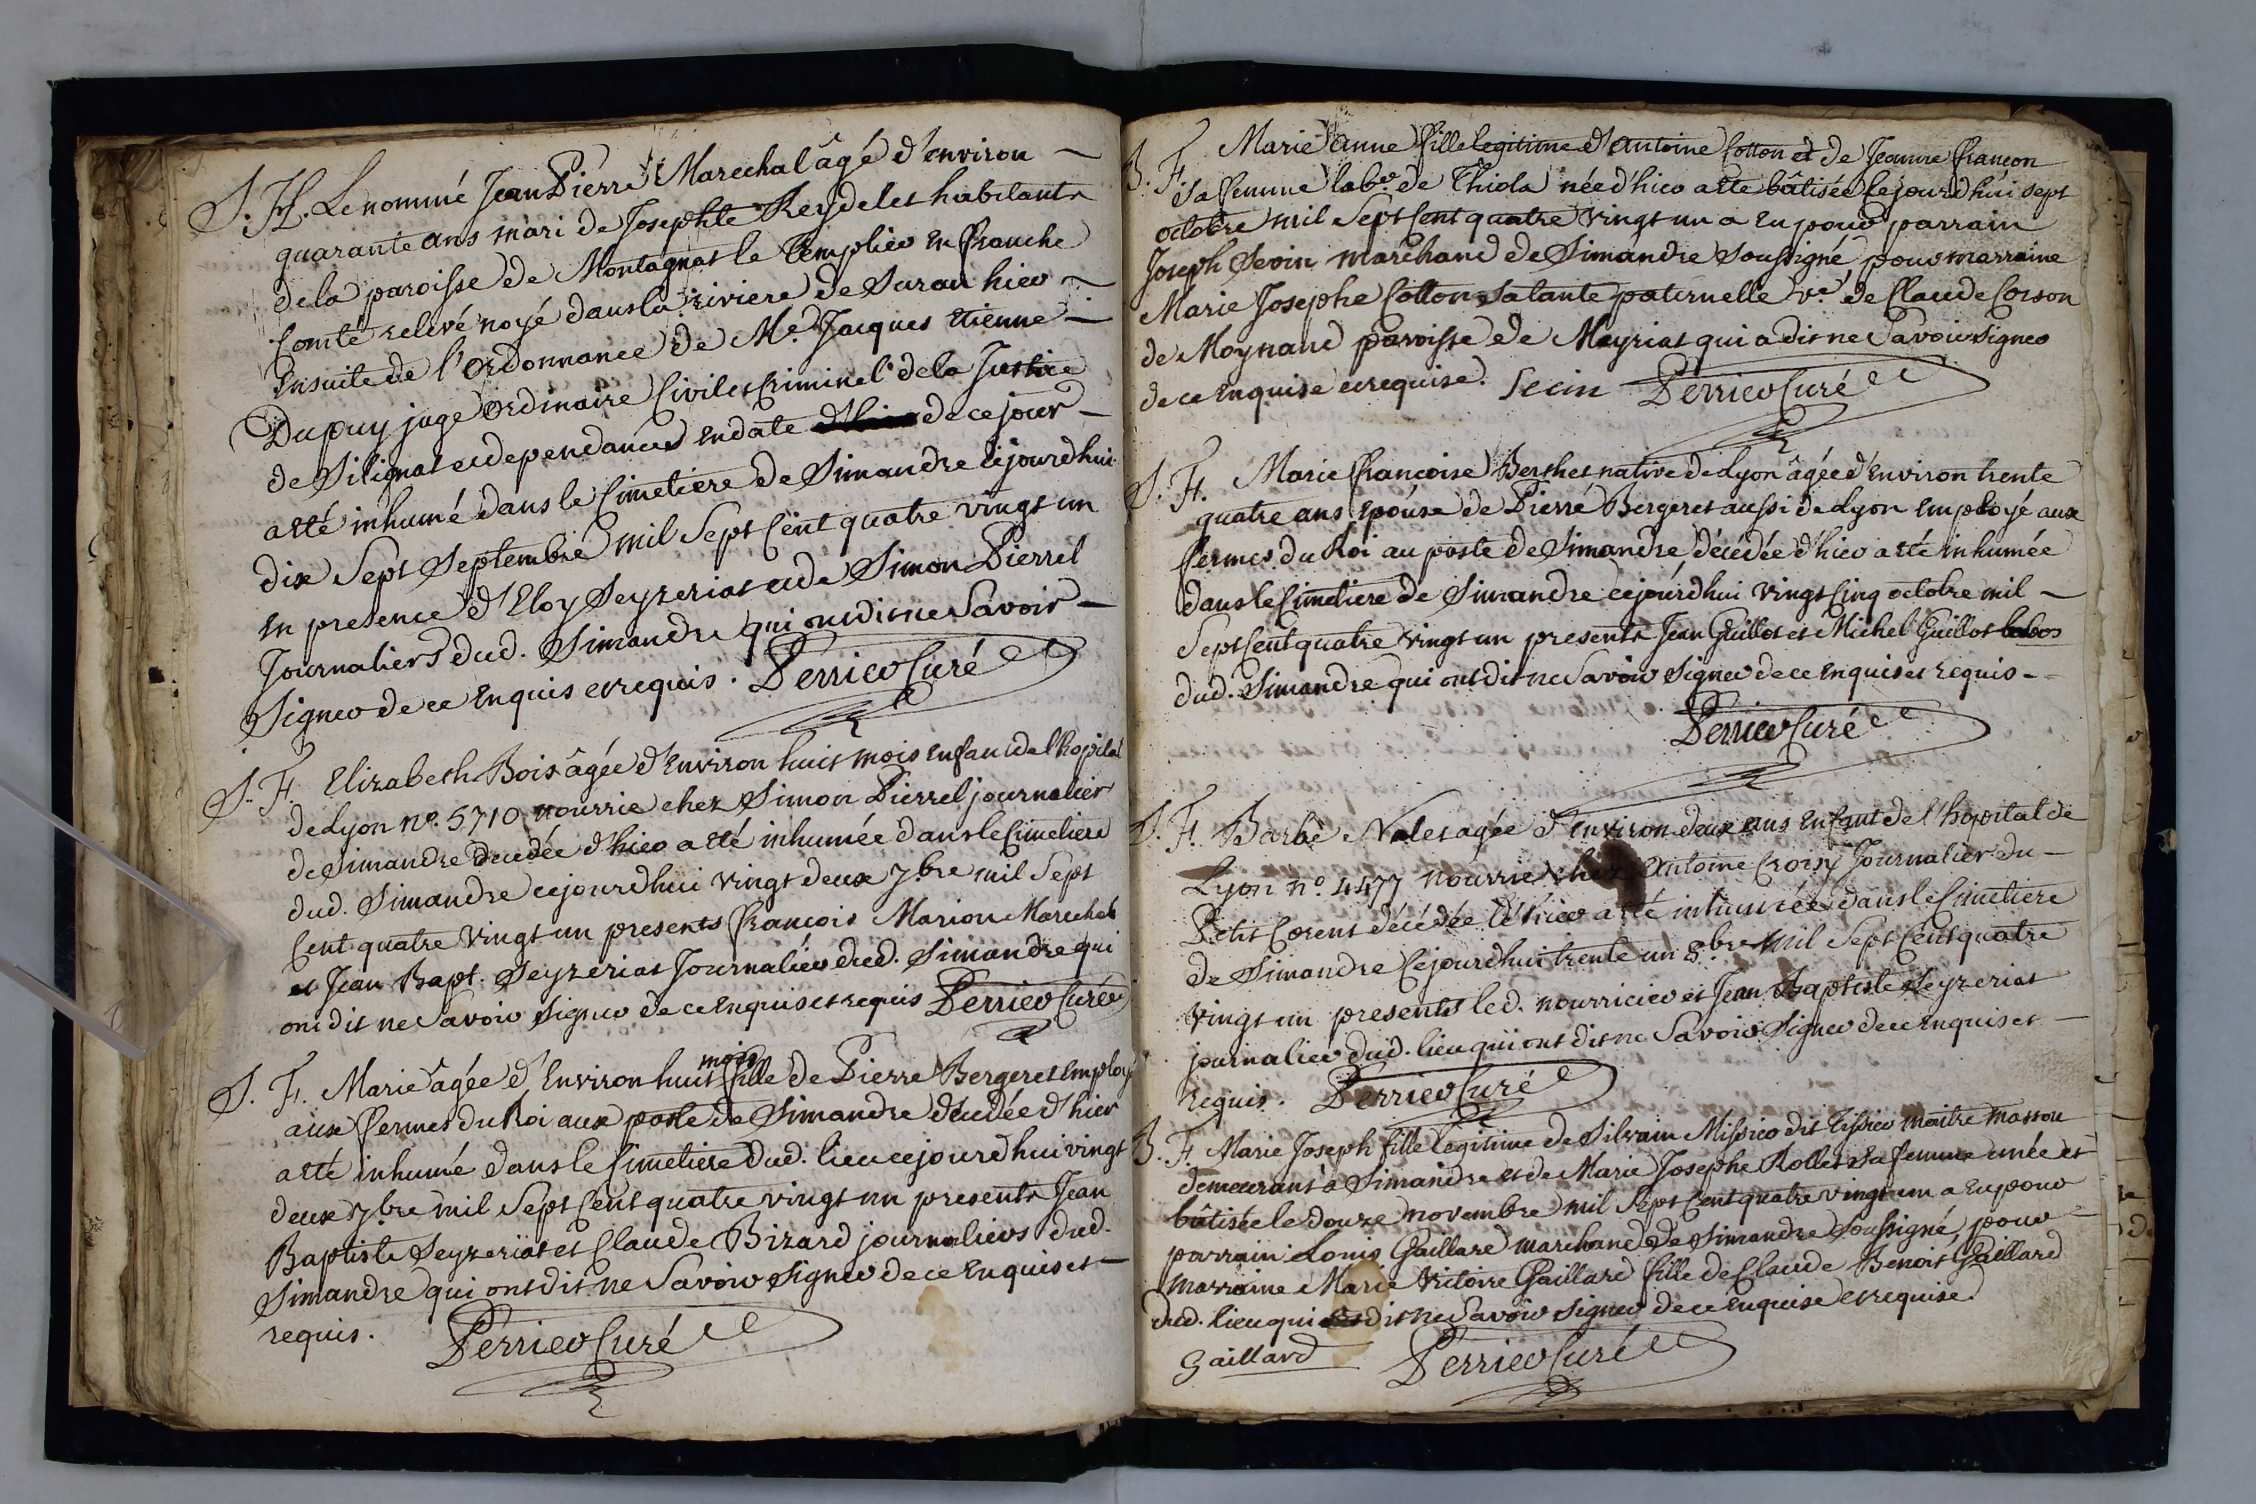 S. H. Le nommé Jean Pierre Marechal âgé d'environ –
quarante ans mari de Josephte Reydelet habitants
de la paroisse de Montagnat le Templier en franche
Comté relevé noyé dans la riviere de Suran hier –
ensuite de l'ordonnance de Me. Jacques Etienne –
Dupuy juge ordinaire Civil et Criminel de la Justice
de Silignat et dependances en date de ce jour –
a eté inhumé dans le Cimetiere de Simandre cejourdhui
dix Sept Septembre mil Sept Cent quatre vingt un
en presence d'Eloy Seyzeriat et de Simon Pierrel
Journaliers dud. Simandre qui ont dit ne Savoir –
Signer de ce enquis et requis. Perrier Curé
S. F. Elizabeth Bois âgée d'environ huit mois enfant de l'hopital
de Lyon no. 5710 nourrie chez Simon Pierrel journalier
de Simandre decedée d'hier a eté inhumée dans le Cimetiere
dud. Simandre cejourdhui vingt deux 7.bre mil Sept
Cent quatre vingt un presents françois Marion Marechal
et Jean Bapt. Seyzeriat Journalier dud. Simandre qui
ont dit ne Savoir Signer de ce enquis et requis Perrier Curé
mois
S. F. Marie âgée d'environ huit fille de Pierre Bergeret employé
aux fermes du Roi aux poste de Simandre decedée d'hier
a eté inhumé dans le Cimetiere dud. lieu cejourdhui vingt
deux 7.bre mil Sept Cent quatre vingt un presents Jean
Baptiste Seyzeriat et Claude Bizard journaliers dud.
Simandre qui ont dit ne Savoir Signer de ce enquis et –
requis. Perrier Curé
B. F. Marie anne fille legitime d'Antoine Cotton et de Jeanne françon
sa femme labr. de Thiola née d'hier a eté bâtisée cejourdhui sept
octobre mil Sept Cent quatre vingt un a eu pour parrain
Joseph Sevin marchand de Simandre Soussigné, pour marraine
Marie Josephe Cotton sa tante paternelle ve. de Claude Corson
de Moynand paroisse de Meyriat qui a dit ne Savoir Signer
de ce enquise et requise. Sevin Perrier Curé
S. F. Marie françoise Berthet native de Lyon âgée d'environ trente
quatre ans épouse de Pierre Bergeret aussi de Lyon employé aux
fermes du Roi au poste de Simandre, décédée d'hier a eté inhumée
dans le Cimetiere de Simandre cejourdhui vingt Cinq octobre mil –
Sept Cent quatre vingt un presents Jean Guillot et Michel Guillot labos
dud. Simandre qui ont dit ne Savoir Signer de ce enquis et requis –
Perrier Curé
S. F. Barbe Nolet agée d'environ deux ans enfant de l'hopital de
Lyon no. 4477 nourrie chez Antoine Croisy Journalier du –
Petit Corent décédée d'hier a eté inhumée dans le Cimetiere
de Simandre Cejourdhui trente un 8.bre mil Sept Cent quatre
vingt un presents led. nourricier et Jean Baptiste Seyzeriat
journalier dud. lieu qui ont dit ne Savoir Signer de ce enquis et –
requis. Perrier Curé
B. F. Marie Joseph fille legitime de Silvain Missier dit Tissier maitre masson
demeurant à Simandre et de Marie Josephe Rollet sa femme et née et
bâtisée le douze novembre mil Sept Cent quatre vingt un a eu pour
parrain Louis Gaillard marchand de Simandre Soussigné, pour –
marraine Marie Victoire Gaillard fille de Claude Benoit Gaillard
dud. lieu qui dit ne Savoir Signer de ce enquise et requise.
Gaillard Perrier Curé